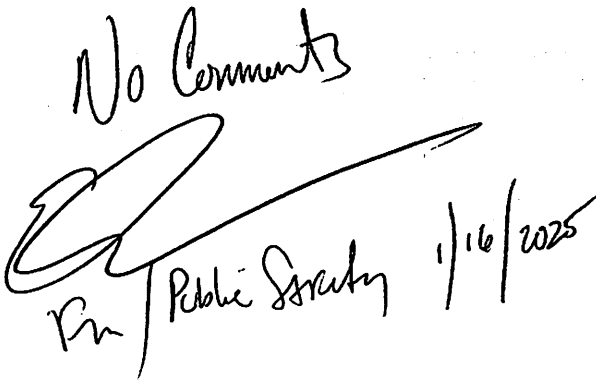 No Comments
Public Safety 1/16/2025